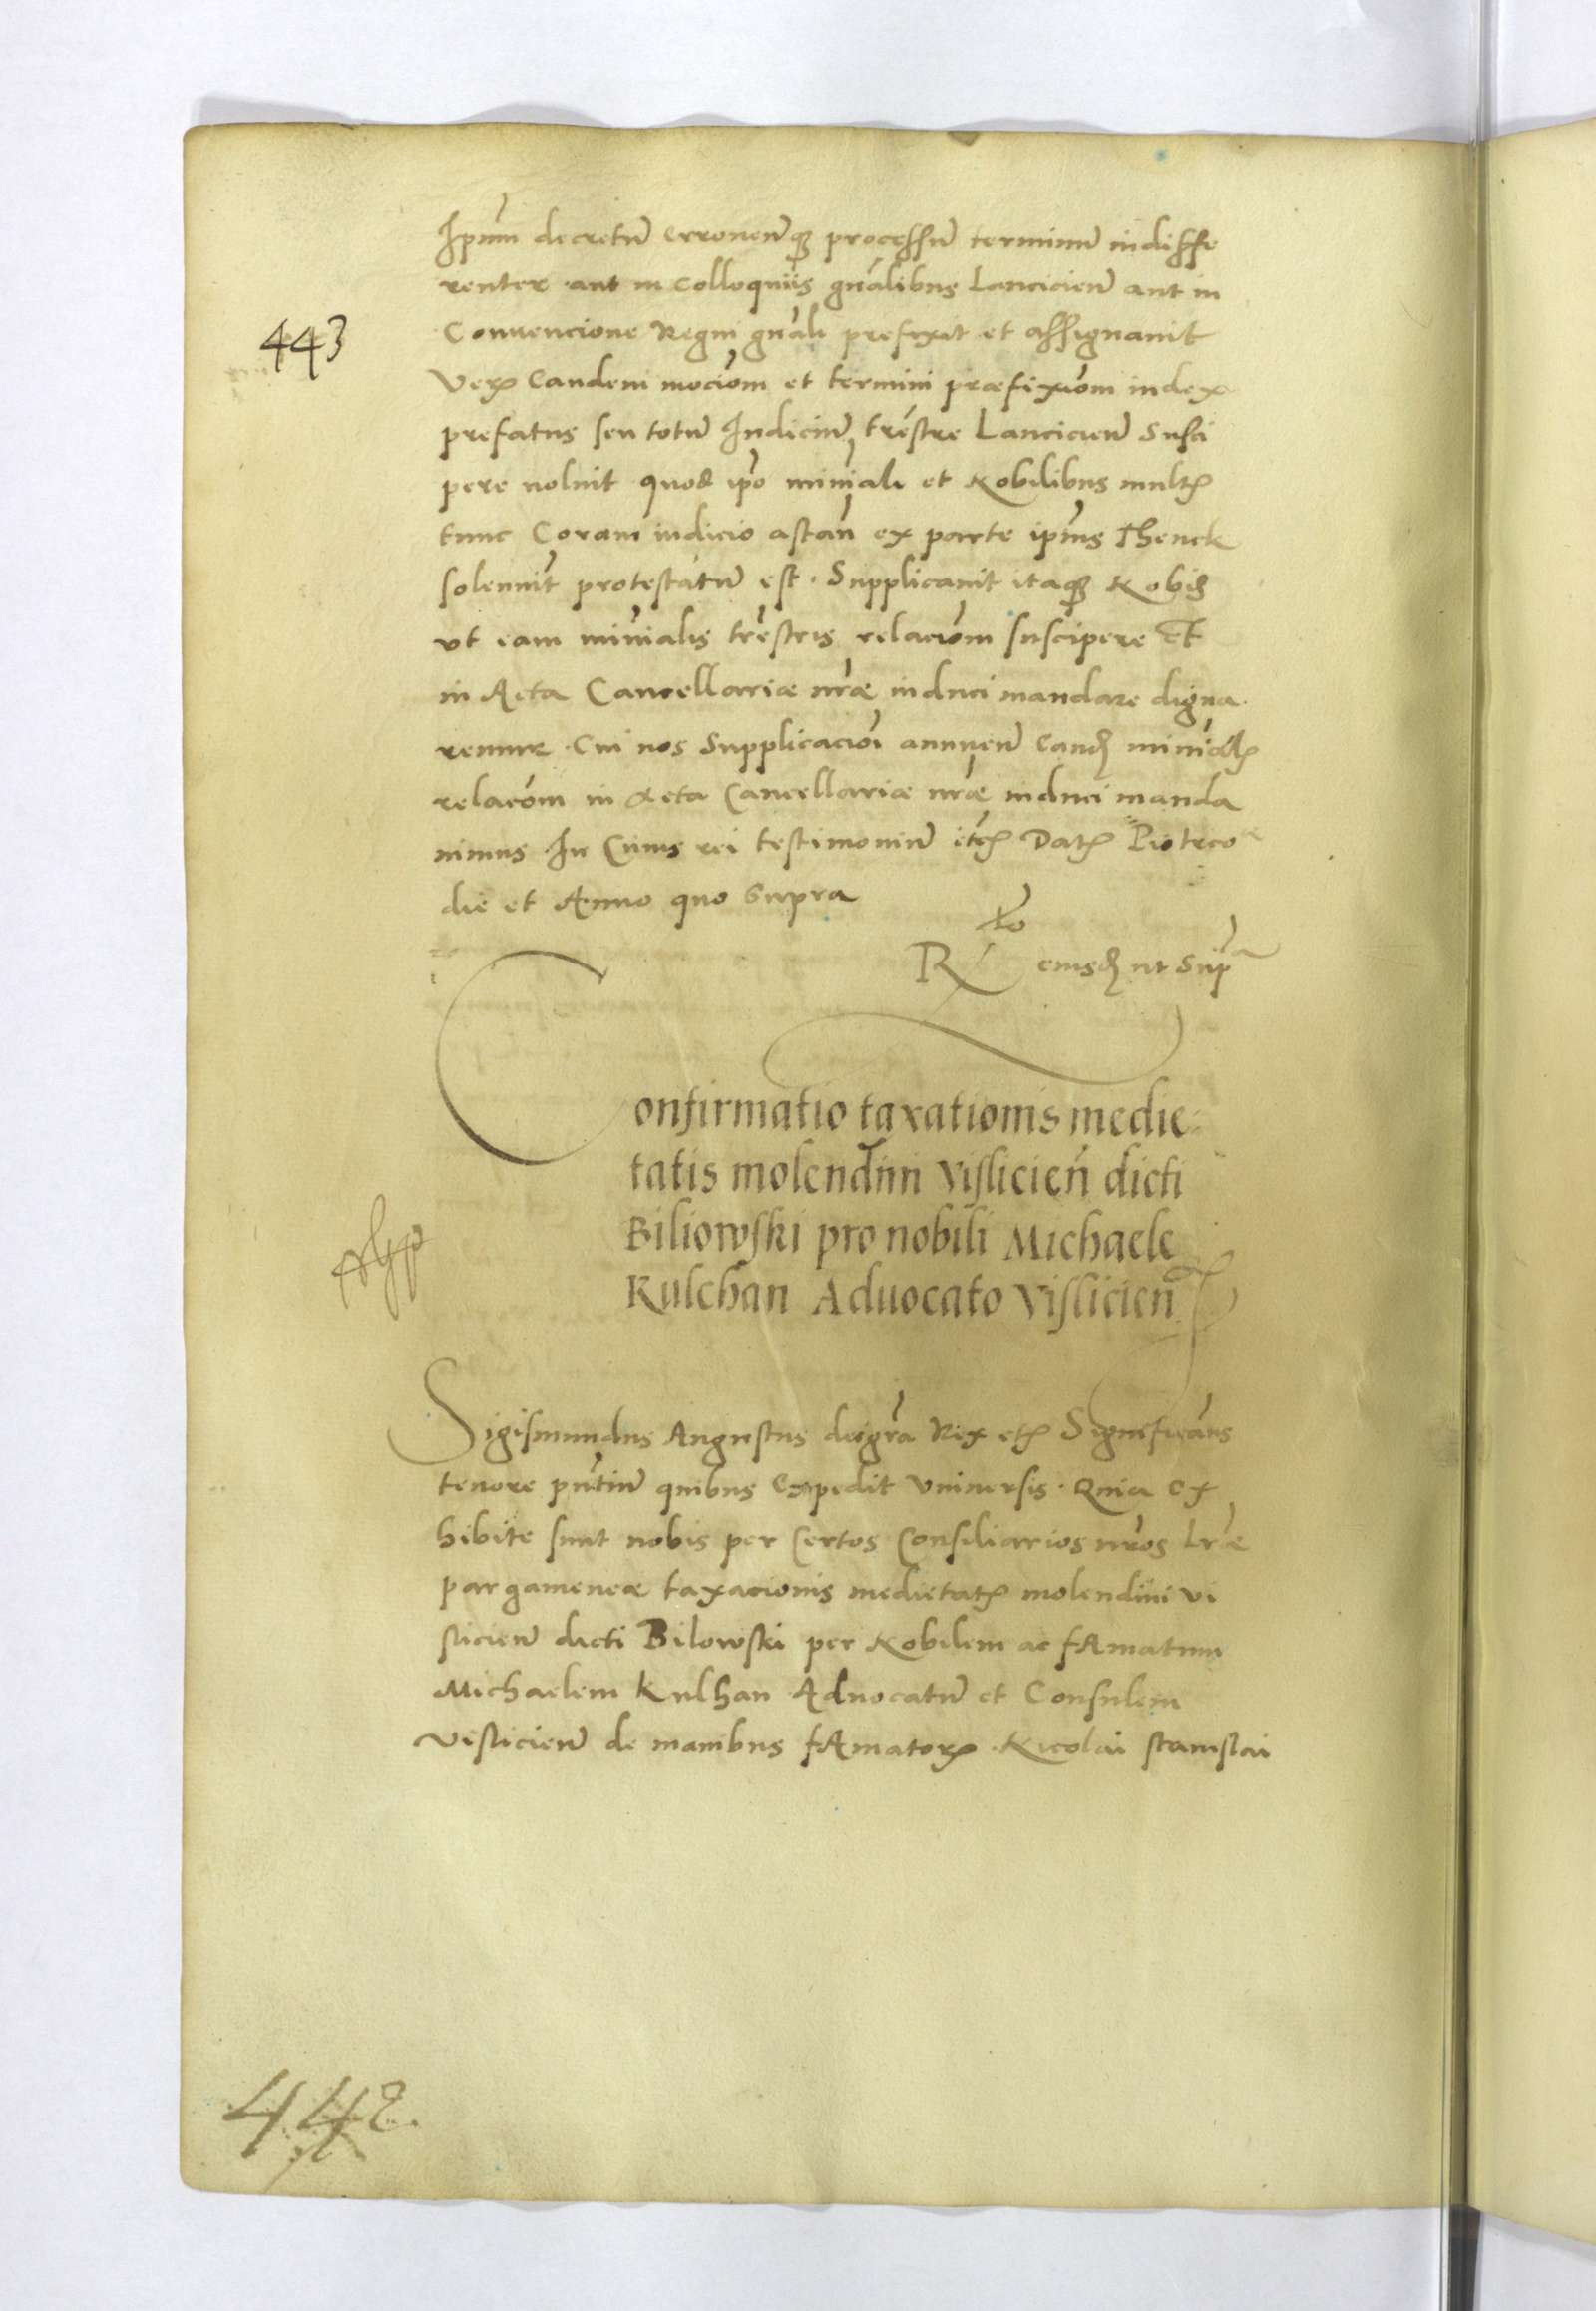 Ipsum decretum erroneumq processum terminum indiffe
renter aut in Colloquiis gnalibus Lancicien aut in
443
Convencione Regni gnali prefixit et assignavit
Verum eandem mocionem et termini praefixionem iudex
prefatus seu totum Iudicium trestre Lancicien Susci
pere noluit quod ipso miniali et Nobilibus multis
tunc Coram iudicio astan ex parte ipsius Thenck
solennit protestatum est. Supplicavit itaq Nobis
ut eam minialis trestris relacionem suscipere Et
in Acta Cancellariae nrae induci mandare digna
remur. Cui nos Supplicacioni annuen eand minialis
relacom in Acta Cancellariae nrae induci manda
vimus In Cuius rei testimonium etc Dat Piotrco
die et Anno quo Supra
Rto eiusd ut Supra
Confirmatio taxationis medie
tatis molendini vislicien dicti
Biliowski pro nobili Michaele
Kulchan Advocato vislicien
Sigismundus Augustus dei gra Rex etc Significamus
tenore pntium quibus Expedit Universis. Quia ex
hibite sunt nobis per Certos Consiliarios nros Lrae
pargameneae taxacionis medietatis molendini vi
slicien dicti Bilowski per Nobilem ac fAmatum
Michaelem Kulhan Advocatum et Consulem
Vislicien de manibus fAmatorum Nicolai stanislai
442